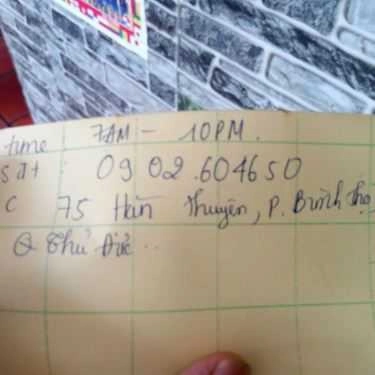 time 7AM - 10PM.
sđt: 0902.604650
c 75 Hàn Thuyên, P. Bình Thọ
Q Thủ Đức...